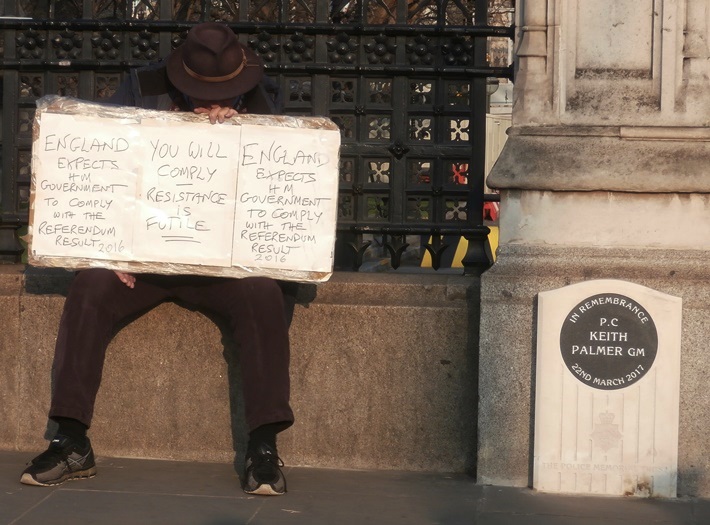 ENGLAND
EXPECTS
HM
GOVERNMENT
TO COMPLY
WITH THE
REFERENDUM
RESULT 2016
YOU WILL
COMPLY
—
RESISTANCE
IS
FUTILE
ENGLAND
EXPECTS
HM
GOVERNMENT
TO COMPLY
WITH THE
REFERENDUM
RESULT
2016
IN REMEMBRANCE
P.C
KEITH
PALMER GM
22ND MARCH 2017
THE POLICE MEMORIAL